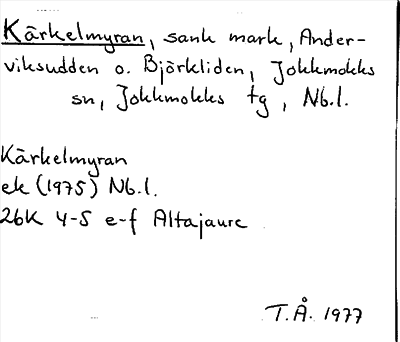 Kärkelmyran, sank mark, Ander-
viksudden o. Björkliden, Jokkmokks
sn, Jokkmokks tg, Nb.l.
Kärkelmyran
ek (1975) Nb.l.
26K 4-5 e-f Altajaure
T.Å. 1977